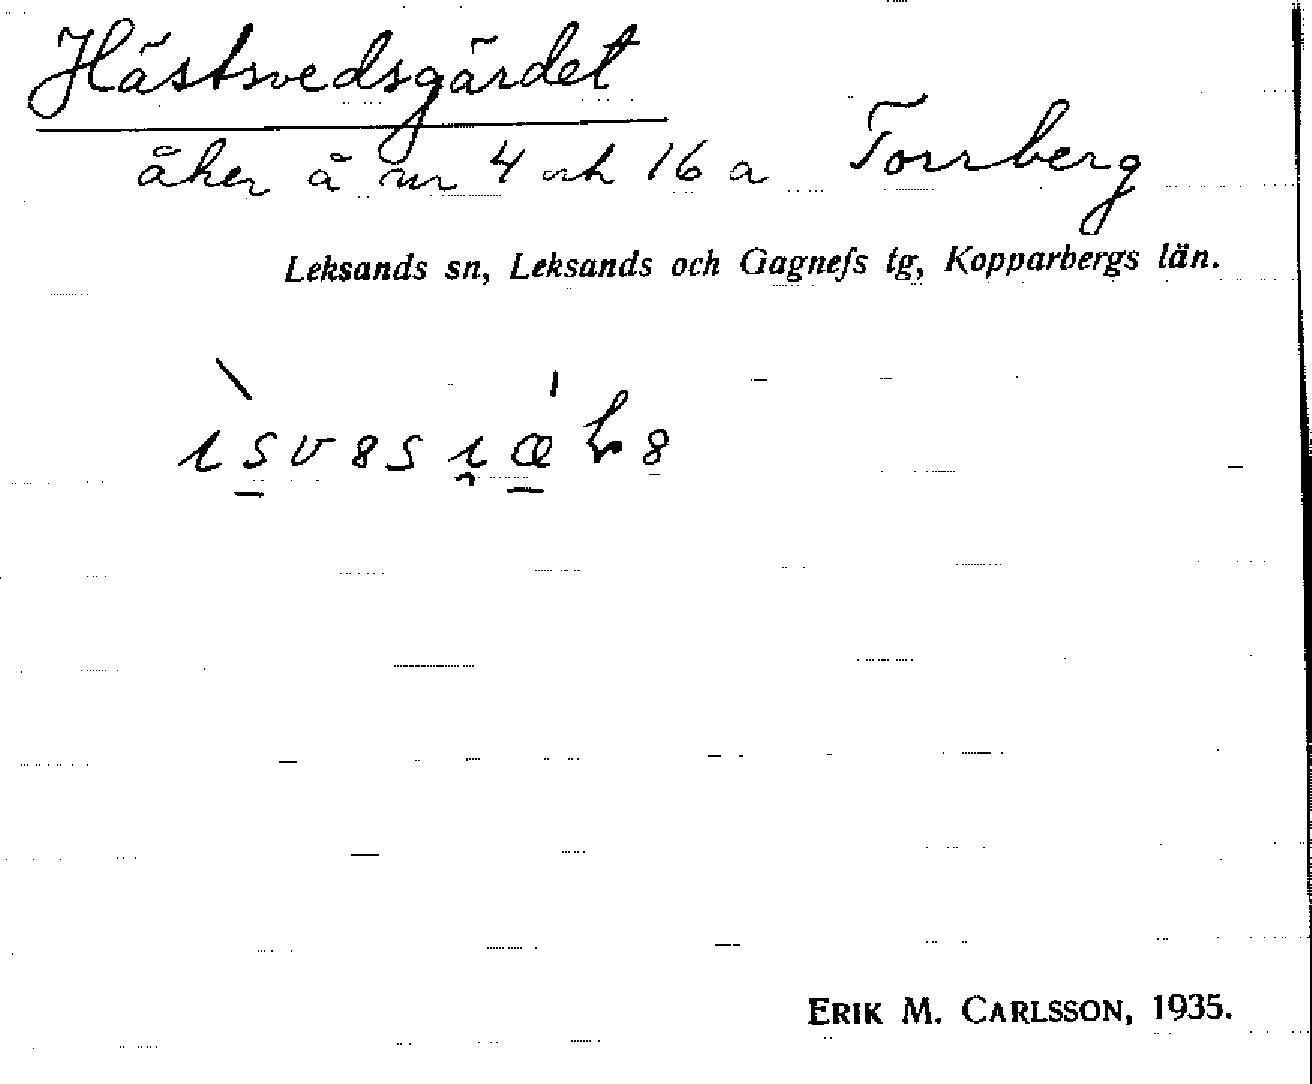 Hästsvedsgärdet
åker å nr 4 och 16 a Torrberg
Leksands sn, Leksands och Gagnefs tg, Kopparbergs län.
ERIK M. CARLSSON, 1935.